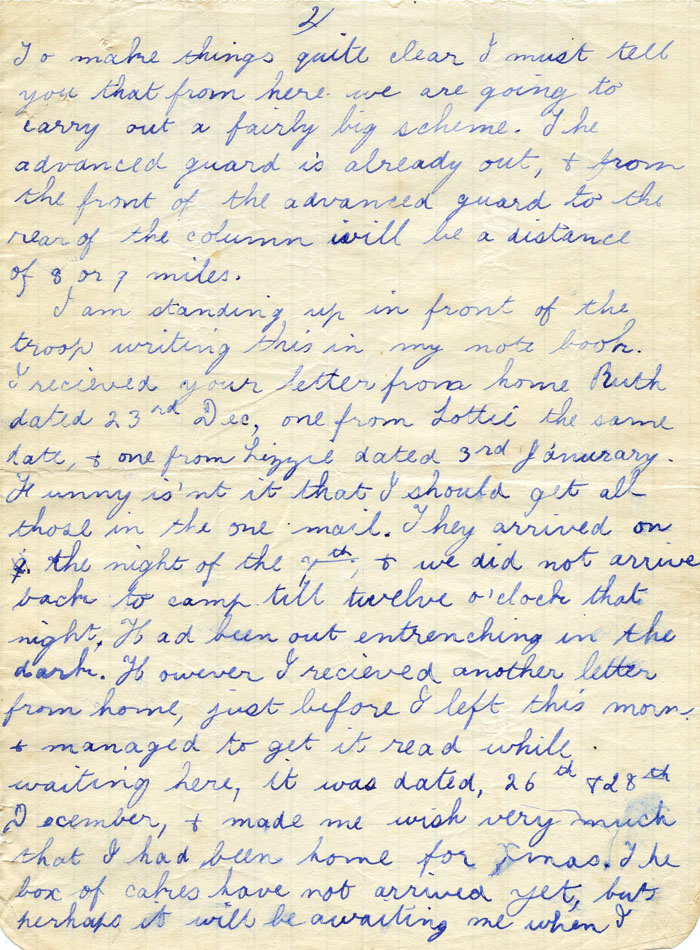 2/
To make things quite clear I must tell
you that from here we are going to
carry out a fairly big scheme. The
advanced guard is already out, & from
the front of the advanced guard to the
rear of the column will be a distance
of 8 or 9 miles.
I am standing up in front of the
troop writing this in my note book.
I recieved your letter from home Ruth
dated 23rd Dec, one from Lottie the same
date, & one from Lizzie dated 3rd Janurary.
Funny is'nt it that I should get all
those in the one mail. They arrived on
the night of the 7th, & we did not arrive
back to camp till twelve o'clock that
night, Had been out entrenching in the
dark. However I recieved another letter
from home, just before I left this morn.
& managed to get it read while
waiting here, it was dated, 26th & 28th
December, & made me wish very much
that I had been home for Xmas. The
box of cakes have not arrived yet, but
perhaps it will be awaiting me when I